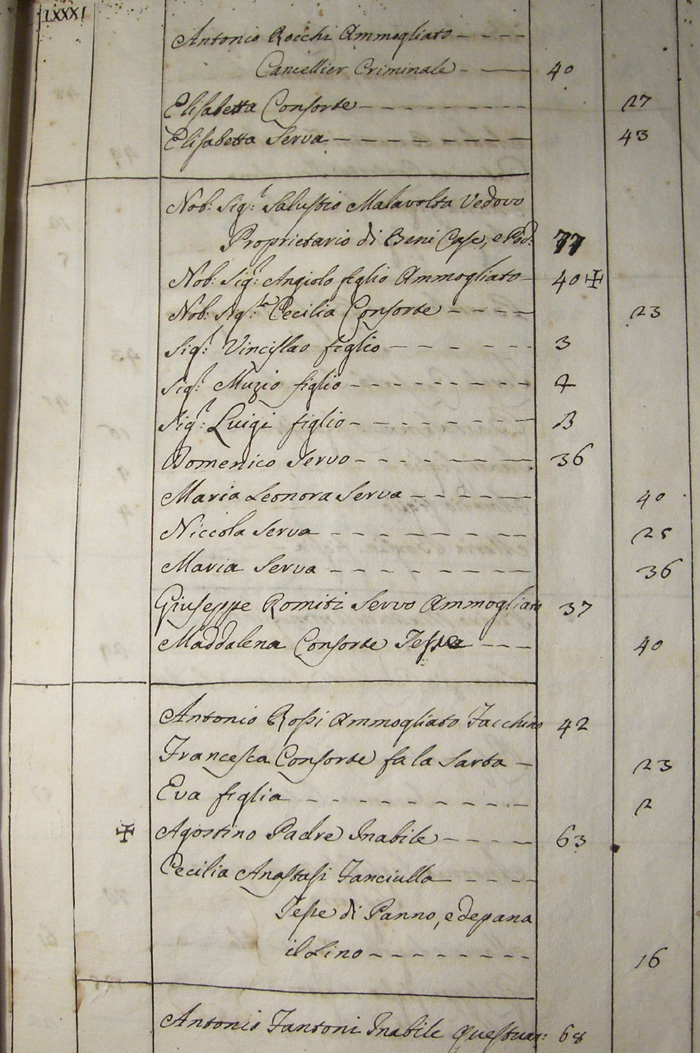 LXXXI
Antonio Rocchi Ammogliato
Cancellier Criminale 40
Elisabetta Consorte 27
Elisabetta Serva 43
Nob: Sig:r Salustio Malavolta Vedovo
Proprietario di Beni Case, e Pod: 77
Nob: Sig:r Angiolo figlio Ammogliato 40 ✠
Nob: Sig:ra Cecilia Consorte 23
Sig:r Vincislao figlio 3
Sig:r Muzio figlio
Sig:r Luigi figlio
Domenico Servo 36
Maria Leonora Serva 40
Niccola Serva 25
Maria Serva 36
Giuseppe Romiti Servo Ammogliato 37
Maddalena Consorte Tesse 40
Antonio Rossi Ammogliato Facchino 42
Francesca Consorte fa la Sarta 23
Eva figlia 2
✠ Agostino Padre Inabile 63
Cecilia Anastasi Fanciulla
Tesse di Panno, e depana
il Lino 16
Antonio Fantoni Inabile Questuan: 68